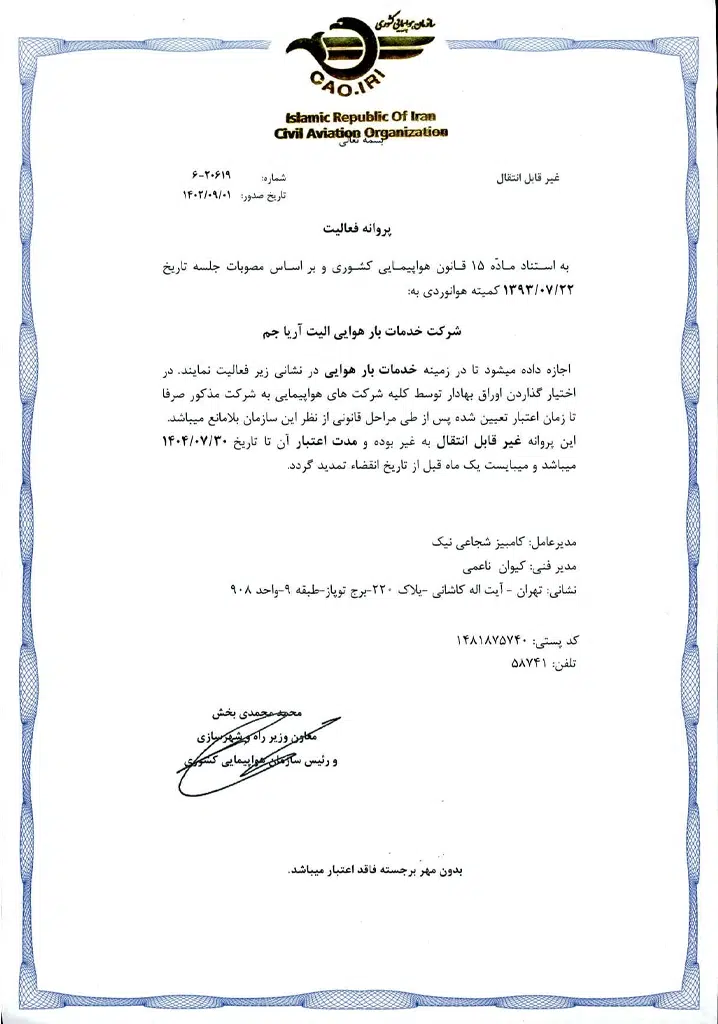 سازمان هواپیمایی کشوری
CAO.IRI
Islamic Republic Of Iran
Civil Aviation Organization
بسمه تعالی
غیر قابل انتقال
شماره: ۲۰۶۱۹-۶
تاریخ صدور: ۱۴۰۲/۰۹/۰۱
پروانه فعالیت
به استناد مادّه ۱۵ قانون هواپیمایی کشوری و بر اساس مصوبات جلسه تاریخ
۱۳۹۳/۰۷/۲۲ کمیته هوانوردی به:
شرکت خدمات بار هوایی الیت آریا جم
اجازه داده میشود تا در زمینه خدمات بار هوایی در نشانی زیر فعالیت نمایند. در
اختیار گذاردن اوراق بهادار توسط کلیه شرکت های هواپیمایی به شرکت مذکور صرفا
تا زمان اعتبار تعیین شده پس از طی مراحل قانونی از نظر این سازمان بلامانع میباشد.
این پروانه غیر قابل انتقال به غیر بوده و مدت اعتبار آن تا تاریخ ۱۴۰۴/۰۷/۳۰
میباشد و میبایست یک ماه قبل از تاریخ انقضاء تمدید گردد.
مدیرعامل: کامبیز شجاعی نیک
مدیر فنی: کیوان ناعمی
نشانی: تهران - آیت اله کاشانی -پلاک ۲۲۰-برج توپاز-طبقه ۹-واحد ۹۰۸
کد پستی: ۱۴۸۱۸۷۵۷۴۰
تلفن: ۵۸۷۴۱
محمد محمدی بخش
معاون وزیر راه و شهرسازی
و رئیس سازمان هواپیمایی کشوری
بدون مهر برجسته فاقد اعتبار میباشد.